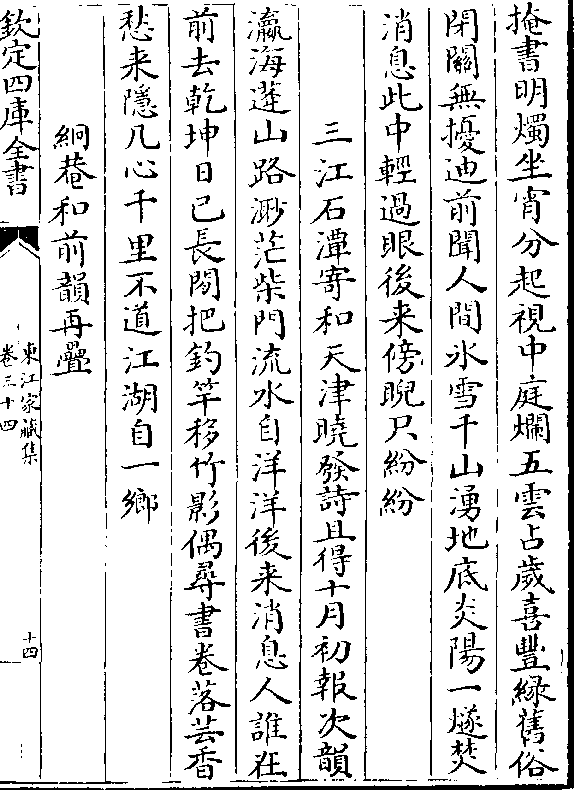 掩書明燭坐宵分起視中庭爛五雲占歲喜豐緣舊俗
閉關無擾迪前聞人間氷雪千山湧地底炎陽一燧焚
消息此中輕過眼後来傍睨只紛紛
三江石潭寄和天津曉發詩且得十月初報次韻
瀛海蓬山路渺茫柴門流水自洋洋後来消息人誰在
前去乾坤日已長閒把釣竿移竹影偶尋書卷落芸香
愁来隱几心千里不道江湖自一鄉
絅菴和前韻再疊
欽定四庫全書
東江家藏集
卷三十四
十四